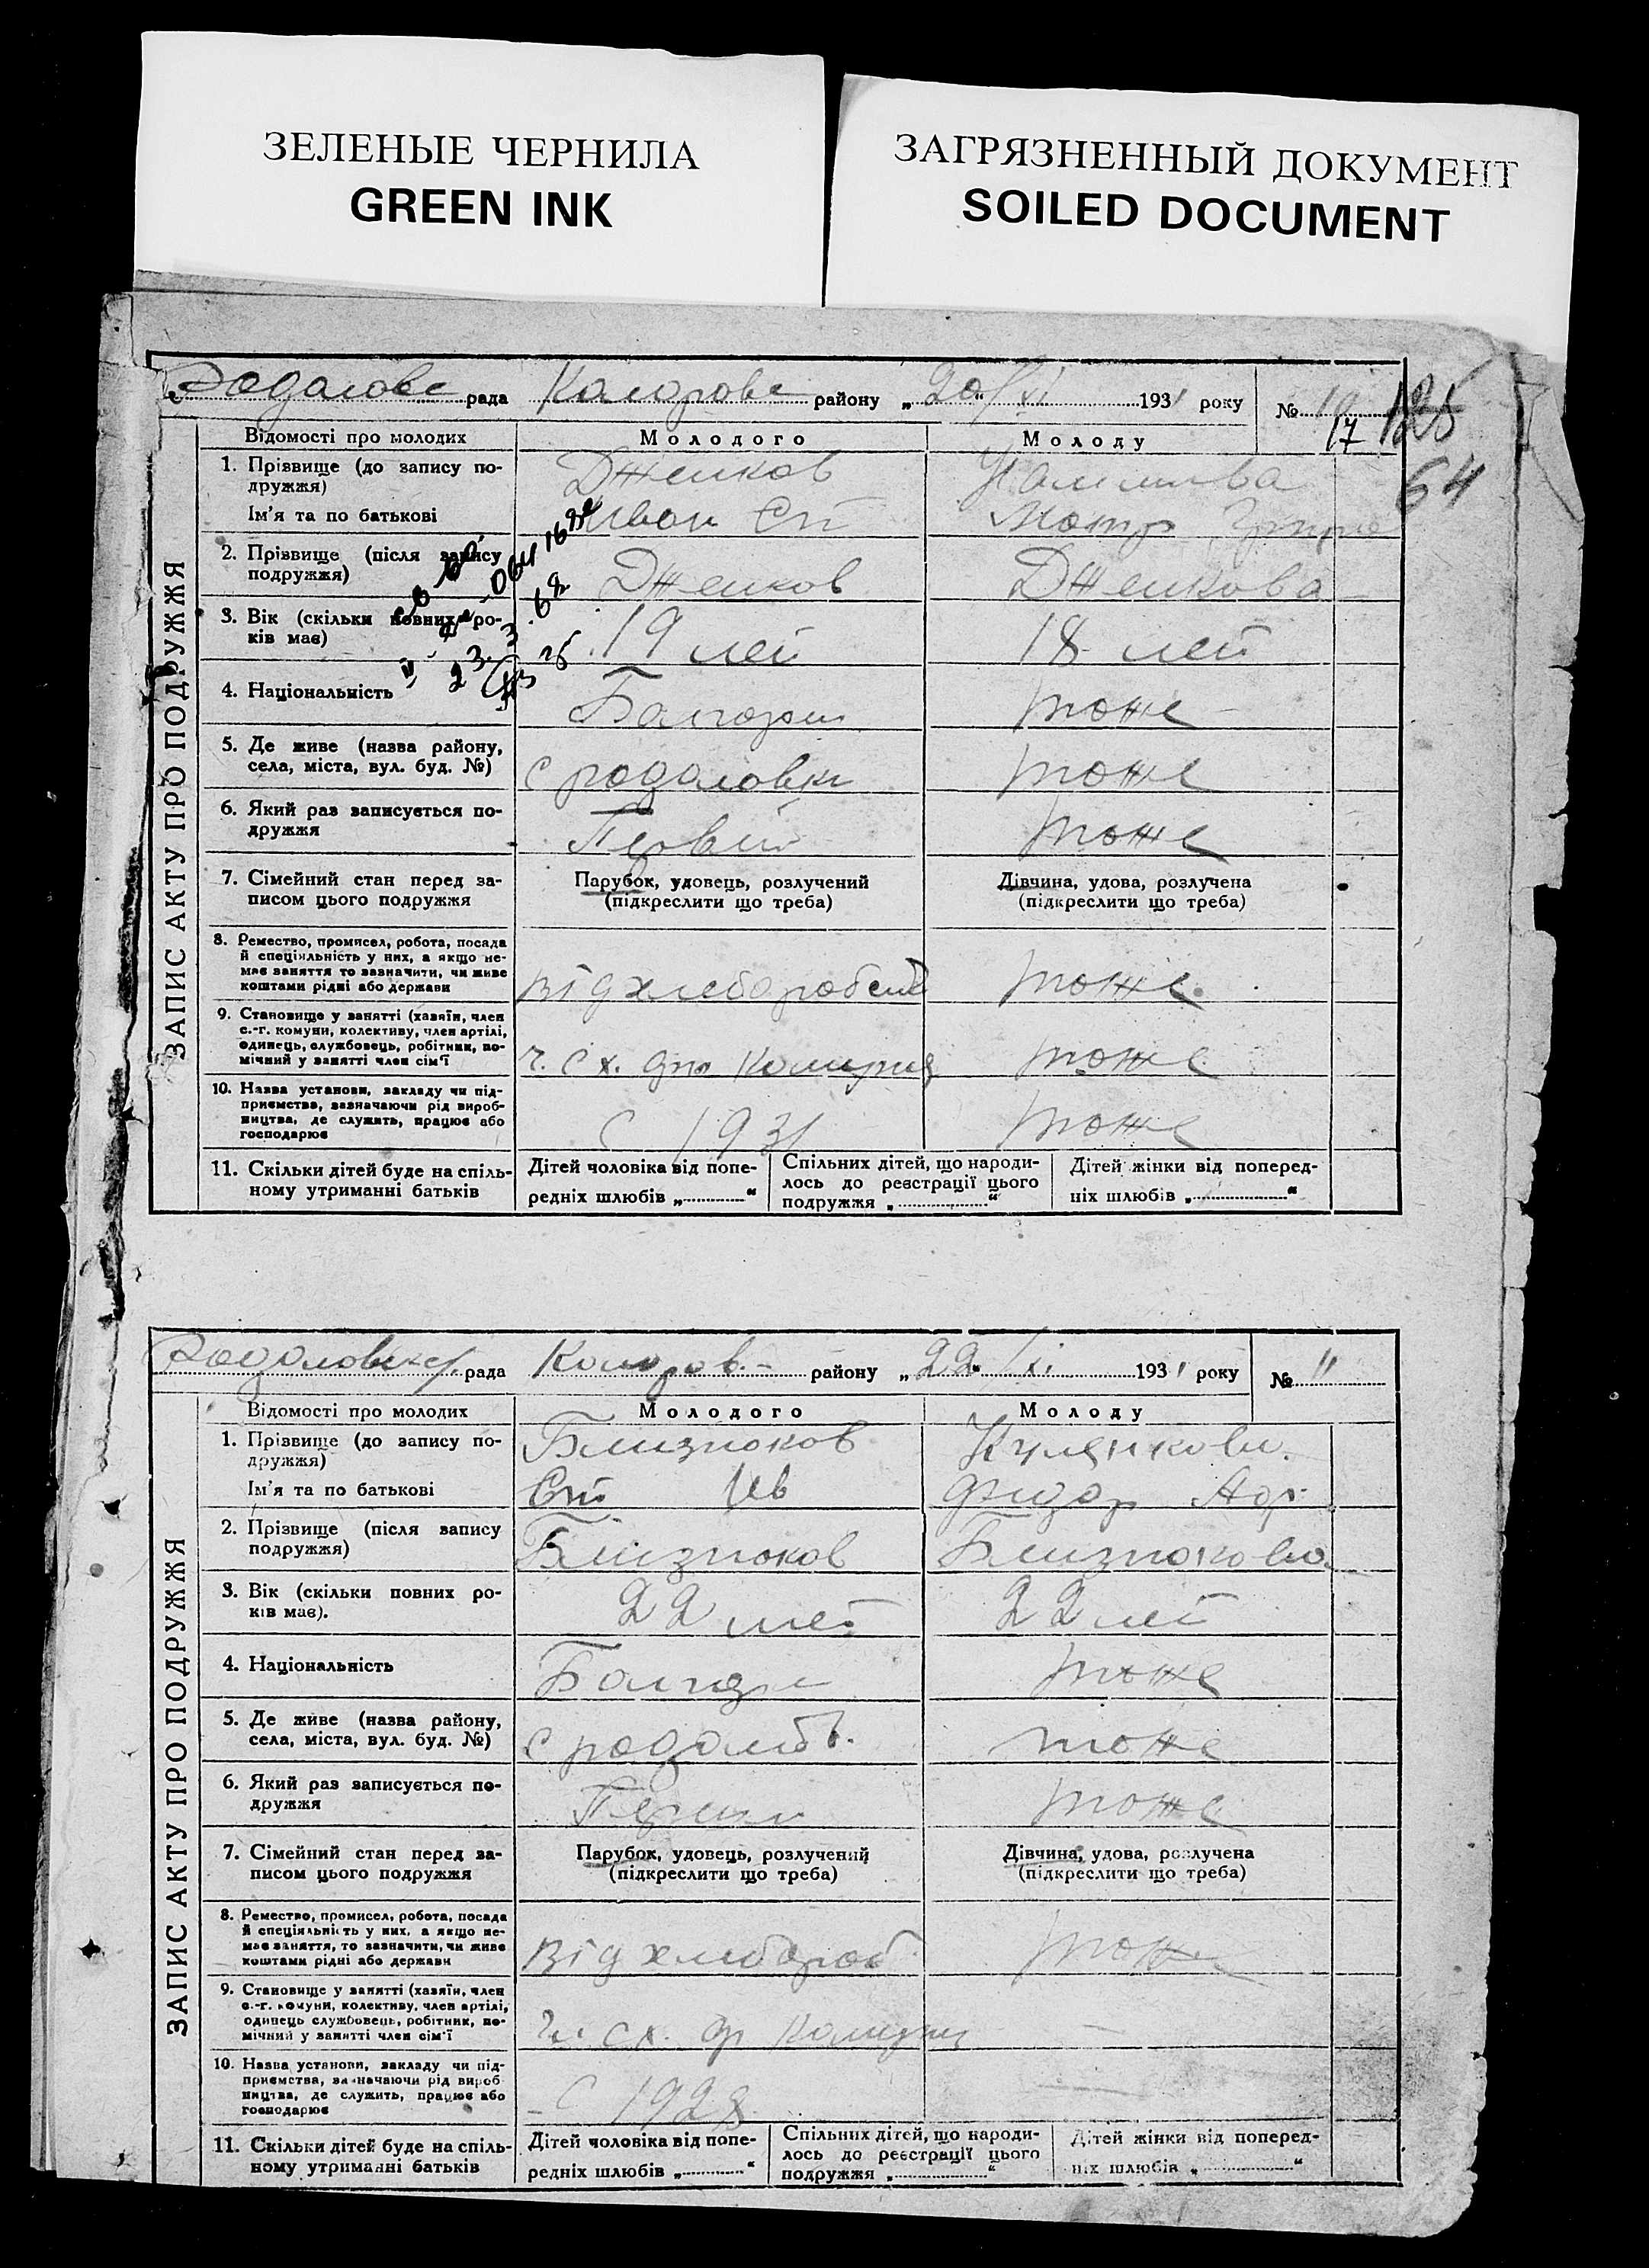 ЗЕЛЕНЫЕ ЧЕРНИЛА
GREEN INK
ЗАГРЯЗНЕННЫЙ ДОКУМЕНТ
SOILED DOCUMENT
рада району „20“/XI 1931 року №10
17 125
64
ЗАПИС АКТУ ПРО ПОДРУЖЖЯ
Відомості про молодих Молодого Молоду
1. Прізвище (до запису по-
дружжя) Дженков
Ім'я та по батькові Иван Ст
2. Прізвище (після запису
подружжя) Дженков Дженкова
3. Вік (скільки повних ро-
ків має) 19 лет 18 лет
4. Національність тоже
5. Де живе (назва району,
села, міста, вул. буд. №) с родаловки тоже
6. Який раз записується по-
дружжя Первый тоже
7. Сімейний стан перед за-
писом цього подружжя Парубок, удовець, розлучений
(підкреслити що треба) Дівчина, удова, розлучена
(підкреслити що треба)
8. Ремество, промисел, робота, посада
й спеціяльність у них, а якщо не-
має заняття то зазначити, чи живе
коштами рідні або держави тоже
9. Становище у занятті (хазяїн, член
с.-г. комуни, колективу, член артілі,
одинець, службовець, робітник, по-
мічний у занятті член сім'ї тоже
10. Назва установи, закладу чи під-
приємства, зазначаючи рід вироб-
ництва, де служить, працює або
господарює с 1931 тоже
11. Скільки дітей буде на спіль-
ному утриманні батьків Дітей чоловіка від попе-
редніх шлюбів „ “ Спільних дітей, що народи-
лось до реєстрації цього
подружжя „ “ Дітей жінки від поперед-
ніх шлюбів „ “
рада району „22“/XI 1931 року № 11
ЗАПИС АКТУ ПРО ПОДРУЖЖЯ
Відомості про молодих Молодого Молоду
1. Прізвище (до запису по-
дружжя) Близнюков
Ім'я та по батькові Ст Ив
2. Прізвище (після запису
подружжя) Близнюков Близнюкова
3. Вік (скільки повних ро-
ків має). 22 лет 22 лет
4. Національність тоже
5. Де живе (назва району,
села, міста, вул. буд. №) тоже
6. Який раз записується по-
дружжя тоже
7. Сімейний стан перед за-
писом цього подружжя Парубок, удовець, розлучений
(підкреслити що треба) Дівчина, удова, розлучена
(підкреслити що треба)
8. Ремество, промисел, робота, посада
й спеціяльність у них, а якщо не-
має заняття, то зазначити, чи живе
коштами рідні або держави від хлебороб тоже
9. Становище у занятті (хазяїн, член
с.-г. комуни, колективу, член артілі,
одинець службовець, робітник, по-
мічний у занятті член сім'ї
10. Назва установи, закладу чи під-
приємства, зазначаючи рід вироб-
ництва, де служить, працює або
господарює с 1928
11. Скільки дітей буде на спіль-
ному утриманні батьків Дітей чоловіка від попе-
редніх шлюбів „ “ Спільних дітей, що народи-
лось до реєстрації цього
подружжя „ “ Дітей жінки від поперед-
ніх шлюбів „ “